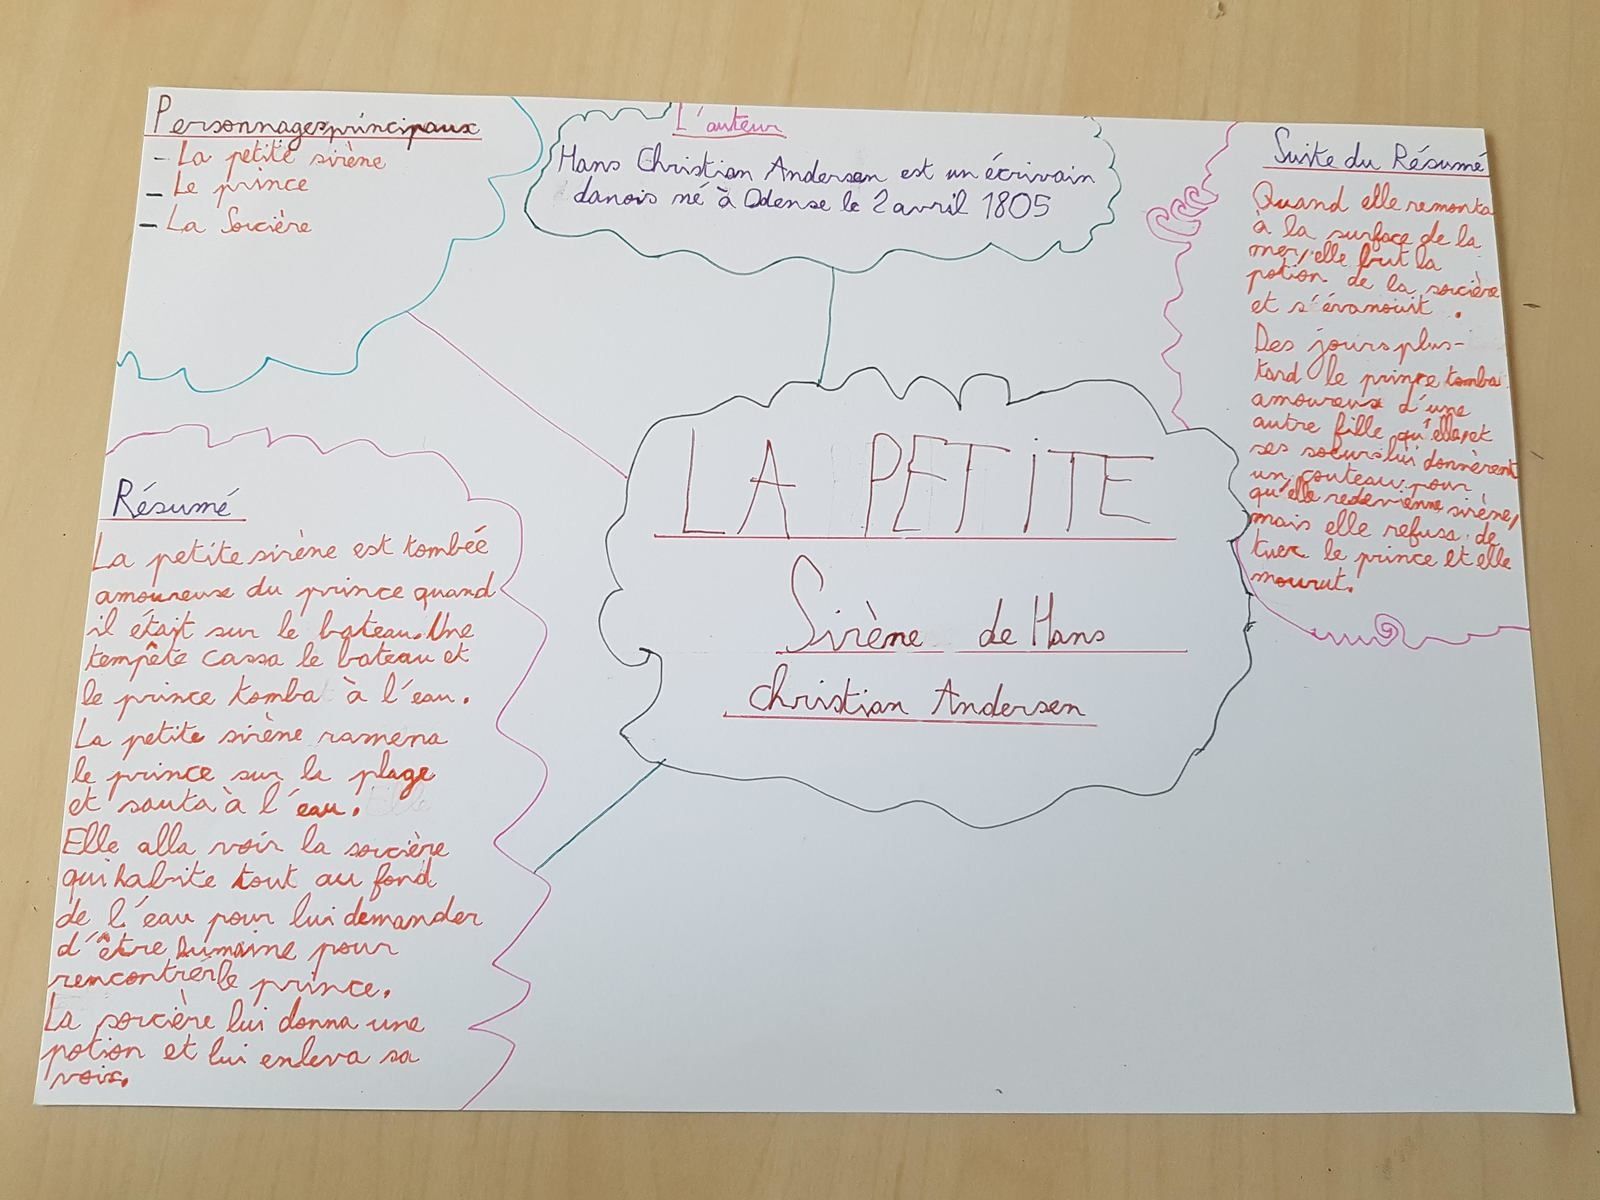 Personnages principaux
- La petite sirène
- Le prince
- La Sorcière
L'auteur
Hans Christian Andersen est un écrivain
danois né à Odense le 2 avril 1805
LA PETITE
Sirène de Hans
Christian Andersen
Résumé
La petite sirène est tombée
amoureuse du prince quand
il était sur le bateau. Une
tempête cassa le bateau et
le prince tomba à l'eau.
La petite sirène ramena
le prince sur la plage
et sauta à l'eau. Elle
Elle alla voir la sorcière
qui habite tout au fond
de l'eau pour lui demander
d'être humaine pour
rencontrer le prince.
La sorcière lui donna une
potion et lui enleva sa
voix.
Suite du Résumé
Quand elle remonta
à la surface de la
mer, elle but la
potion de la sorcière
et s'évanouit.
Des jours plus-
tard le prince tomba
amoureux d'une
autre fille qu'elle, et
ses soeurs lui donnèrent
un couteau pour
qu'elle redevienne sirène,
mais elle refusa de
tuer le prince et elle
mourut.